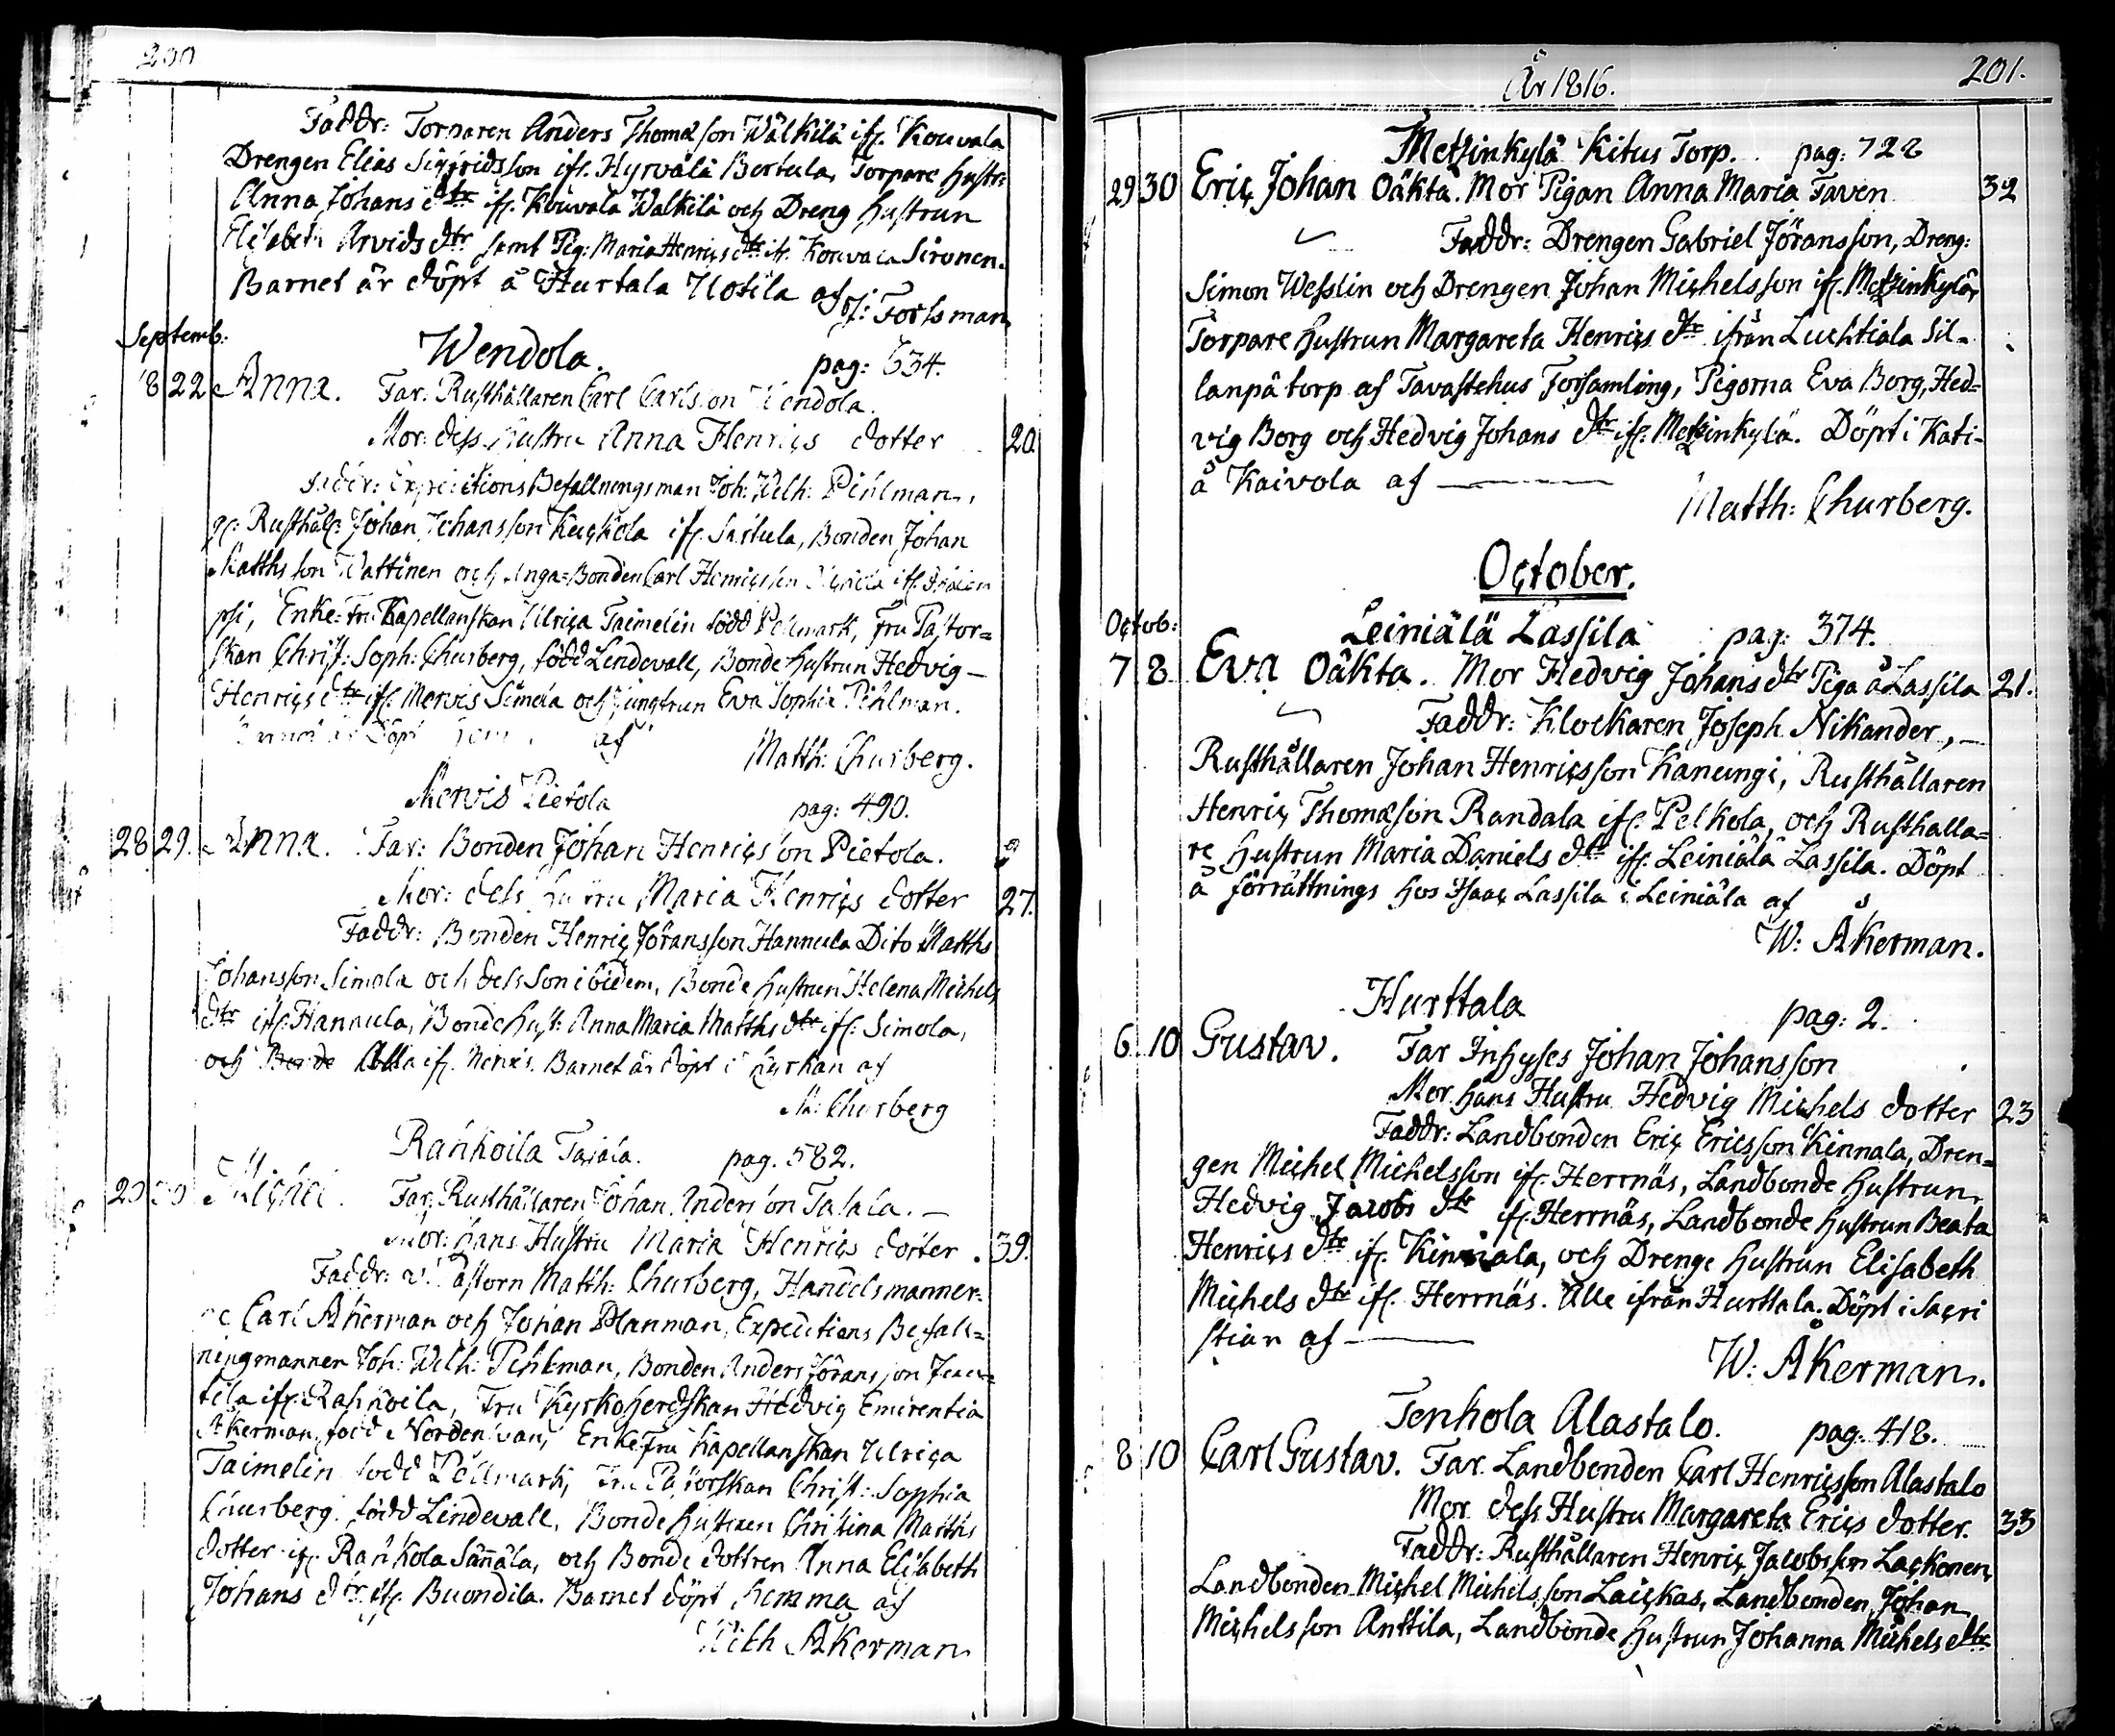 200
Faddr: Torparen Anders Thomasson Wälkilä ifr. Kouvala
Drengen Elias Sigfridsson ifr. Hyrvälä Bertula, Torpare hustr:
Anna Johans dtr ifr. Kouvala Walkilä och Dreng hustrun
Elisabeth Arvids dtr samt Pig: Maria Henrics dtr ifr. Kouvala Sironen.
Barnet är döpt å Hurtala Uotila af
J: Forssman
Septemb:
Wendola. pag: 534.
18 22 Anna. Far: Rusthållaren Carl Carlsson Wendola.
Mor: dess Hustru Anna Henrics dotter 20.
Faddr: Expeditions Befallningsman Joh: Wilh: Pihlman,
Rusthål: Johan Johansson ifr. Sattula, Bonden Johan
Matths son Wattinen och Unga-Bonden Carl Henricsson ifr.
Enke-Fru Kapellanskan Ulrica Taimelin född Pellmark, Fru Pastor=
skan Christ: Soph: Churberg, född Lindevall, Bonde hustrun Hedvig
Henrics dtr ifr. Mervis Simola och Jungfrun Eva Sophia Pihlman.
Barnet är döpt af
Matth: Churberg.
Mervis Pietola pag: 490.
28 29. Anna. Far: Bonden Johan Henricsson Pietola.
Mor: dess hustru Maria Henrics dotter 27.
Faddr: Bonden Henric Jöransson Hannula Dito Matths
Johansson Simola och dess Son ibidem, Bonde hustrun Helena Michels
dtr ifr. Hannula, Bonde hust: Anna Maria Matths dtr ifr. Simola,
och Alla ifr. Mervis. Barnet är döpt i kyrkan af
M: Churberg
Rahkoila Tasala. pag. 582.
29 30 Michel. Far: Rusthållaren Johan Andersson Tasala.
Mor: hans Hustru Maria Henrics dotter. 39.
Faddr: v. Pastorn Matth: Churberg, Handelsmanner-
ne Carl Åkerman och Johan Planman, Expeditions Befall=
ningmannen Joh: Wilh: Pihlman, Bonden Anders Jöransson
tila ifr. Rahkoila, Fru Kyrkoherdskan Hedvig Emerentia
Åkerman, född Nordenswan, Enke Fru Kapellanskan Ulrica
Taimelin född Pellmark, Fru Pastorskan Christ: Sophia
Churberg född Lindevall, Bonde hustrun Christina Matths
dotter ifr. Rahkola Sännäla, och Bonde dottren Anna Elisabeth
Johans dtr ifr. Buondila. Barnet döpt hemma af
Wilh Åkerman
År 1816. 201.
Metzinkylä Kitus Torp. pag: 722
29 30 Eric Johan Oäkta. Mor Pigan Anna Maria Taven 32
Faddr: Drengen Gabriel Jöransson, Dreng:
Simon Wesslin och Drengen Johan Michelsson ifr. Metzinkylä,
Torpare hustrun Margareta Henrics dtr ifrån Luchtiala Sil=
lanpä torp af Tavastehus Församling, Pigorna Eva Borg, Hed=
vig Borg och Hedvig Johans dtr ifr. Metzinkylä. Döpt i Kati-
å Kaivola af
Matth: Churberg.
October.
Octob:
Leiniälä Lassila pag: 374.
7 8 Eva Oäkta. Mor Hedvig Johans dtr Piga å Lassila 21.
Faddr: Klockaren Joseph Nikander,
Rusthållaren Johan Henricsson Kanungi, Rusthållaren
Henric Thomasson Randala ifr. Pelkola, och Rusthålla=
re hustrun Maria Daniels dtr ifr. Leiniälä Lassila. Döpt
å förrättnings hos Isaac Lassila i Leiniäla af
W: Åkerman.
Hurttala pag: 2.
6 10 Gustav. Far Inhyses Johan Johansson
Mor hans Hustru Hedvig Michels dotter 23
Faddr: Landbonden Eric Ericsson Kinnala, Dren=
gen Michel Michelsson ifr. Herrnäs, Landbonde hustrun
Hedvig Jacobs dtr ifr. Herrnäs, Landbonde hustrun Beata
Henrics dtr ifr. Kinnala, och Drenge hustrun Elisabeth
Michels dtr ifr. Herrnäs. Alle ifrån Hurttala. Döpt i Sacri
stian af
W: Åkerman.
Tenhola Alastalo. pag: 418.
8 10 Carl Gustav. Far. Landbonden Carl Henricsson Alastalo
Mor dess Hustru Margareta Erics dotter. 33
Faddr: Rusthållaren Henric Jacobsson Lackonen,
Landbonden Michel Michelsson Laickas, Landbonden Johan
Michelsson Anttila, Landbonde hustrun Johanna Michels dtr